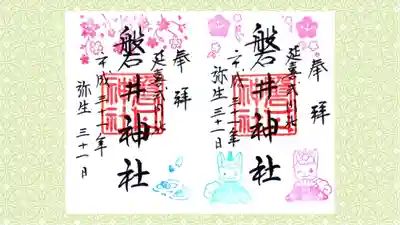 奉拝
延喜式内社
磐井神社
平成三十一年
弥生 三十一日
磐井神社
奉拝
延喜式内社
磐井神社
平成三十一年
弥生 三十一日
磐井神社